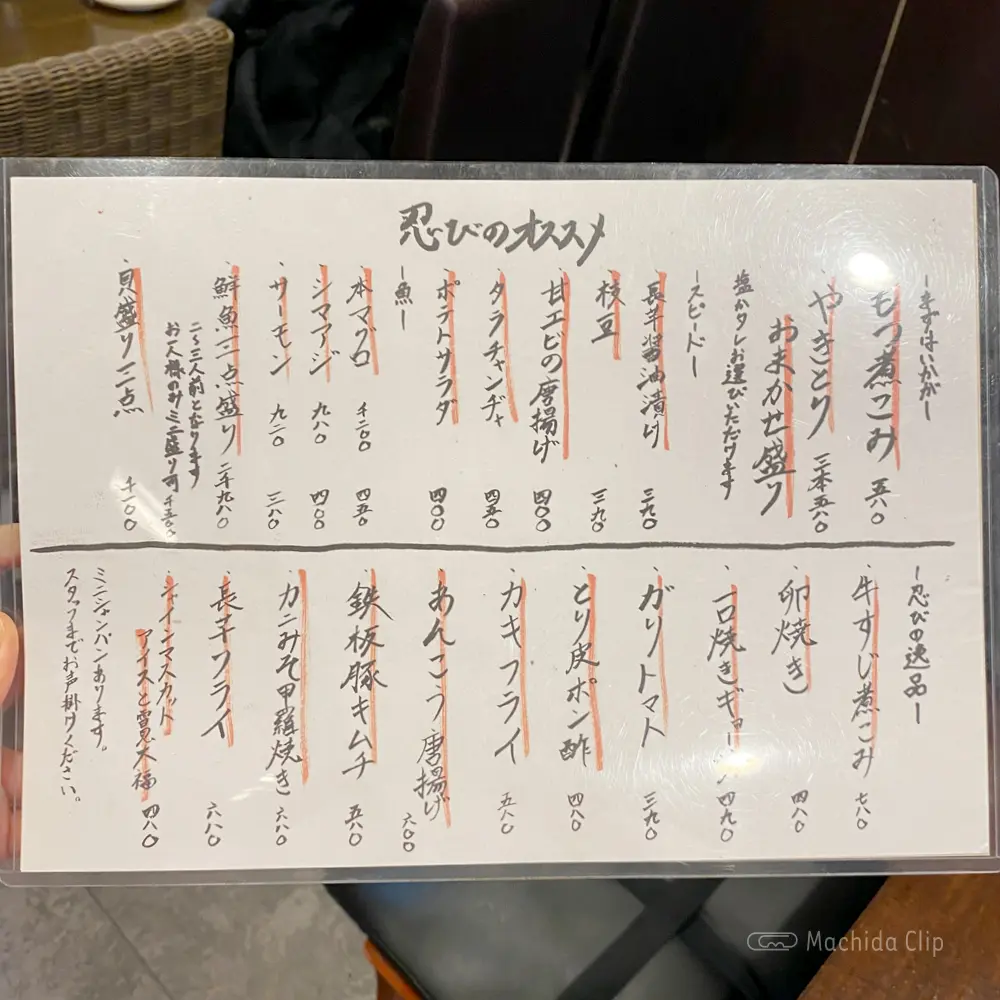 忍びのオススメ
ーまずはいかがー
・もつ煮こみ 五八〇
・やきとり 三本五八〇
おまかせ盛り
塩かタレお選びいただけます
ースピードー
・長芋醤油漬け 三九〇
・枝豆 三九〇
・甘エビの唐揚げ 四〇〇
・タラチャンヂャ 四五〇
・ポテトサラダ 四〇〇
ー魚ー
・本マグロ 千二〇〇 四五〇
・シマアジ 九八〇 四〇〇
・サーモン 九二〇 三八〇
・鮮魚三点盛り 二千九八〇
二〜三人前となります
お一人様のみミニ盛り可 千五〇〇
・貝盛り二点 千一〇〇
ー忍びの逸品ー
・牛すじ煮こみ 七八〇
・卵焼き 四八〇
・一口焼きギョーザ 四九〇
・ガリトマト 三九〇
・とり皮ポン酢 四八〇
・カキフライ 五八〇
・あんこう唐揚げ 六〇〇
・鉄板豚キムチ 五八〇
・カニみそ甲羅焼き 六八〇
・長芋フライ 六八〇
・シャインマスカット
アイスと雪見大福 四八〇
ミニシャンパンあります。
スタッフまでお声掛けください。
Machida Clip